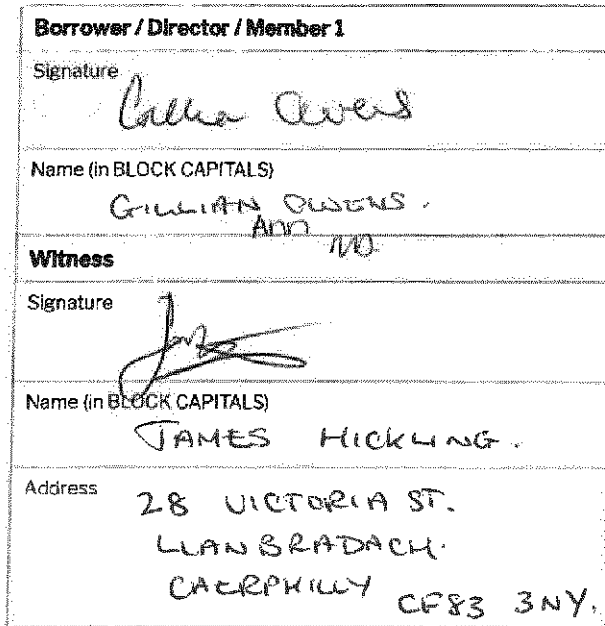 Borrower / Director / Member 1
Signature
Owens
Name (in BLOCK CAPITALS)
GILLIAN OWENS.
Ann
Witness
Signature
Name (in BLOCK CAPITALS)
JAMES HICKLING.
Address
28 VICTORIA ST.
LLANBRADACH.
CAERPHILLY CF83 3NY.